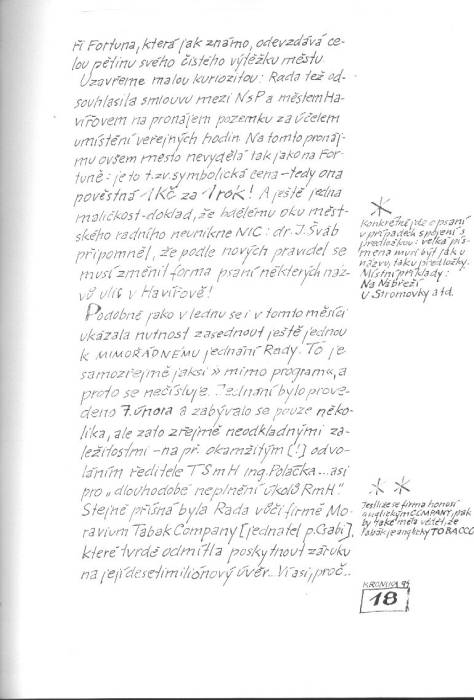 ři Fortuna, která jak známo, odevzdává ce-
lou pětinu svého čistého výtěžku městu.
Uzavřeme malou kuriozitou: Rada též od-
souhlasila smlouvu mezi NsP a městem Ha-
vířovem na pronájem pozemku za účelem
umístění veřejných hodin. Na tomto pronáj-
mu ovšem město nevydělá tak jako na For-
tuně: je to t.zv. symbolická cena – tedy ona
pověstná 1 Kč za 1 rok! A ještě jedna
maličkost - doklad, že bdělému oku měst-
ského radního neunikne NIC: dr. J. Šváb
připomněl, že podle nových pravidel se
musí změnit forma psaní některých náz-
vů ulic v Havířově!
Podobně jako v lednu se i v tomto měsíci
ukázala nutnost zasednout ještě jednou
k MIMOŘÁDNÉMU jednání Rady. To je
samozřejmě jaksi » mimo program«, a
proto se nečísluje. Jednání bylo prove-
deno 7. února a zabývalo se pouze něko-
lika, ale zato zřejmě neodkladnými zá-
ležitostmi – na př. okamžitým [!] odvo-
láním ředitele TSmH ing. Polačka... asi
pro „dlouhodobé neplnění úkolů RmH".
Stejně přísná byla Rada vůči firmě Mo-
ravium Tabak Company [jednatel p. Csabi],
které tvrdě odmítla poskytnout záruku
na její desetimiliónový úvěr.. Ví asi, proč..
*
Konkrétně jde o psaní
v případech spojení s
předložkou: velká pís-
mena musí být jak u
názvu, tak u předložky.
Místní příklady:
Na Nábřeží
U Stromovky atd.
* *
Jestliže se firma honosí
anglickým COMPANY, pak
by také měla vědět, že
Tabák je anglicky TOBACCO
KRONIKA 95
18